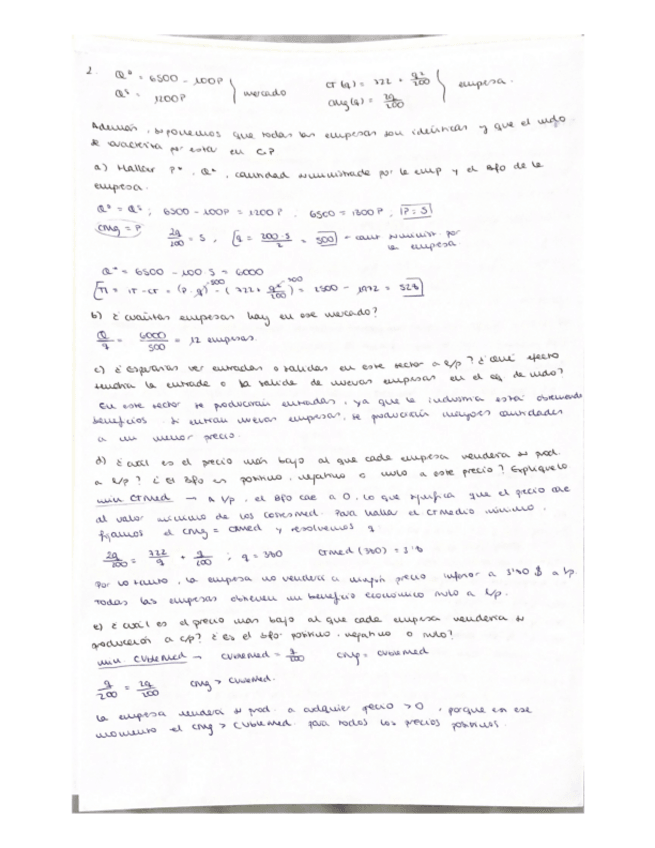 2. Qᴰ = 6500 - 100P } mercado CT(q) = 722 + q²/200 } empresa.
Qˢ = 1200P CMg(q) = 2q/200
Además, suponemos que todas las empresas son idénticas y que el mdo
se caracteriza por estar en C.P
a) Hallar P*, Q*, cantidad suministrada por la emp y el Bfo de la
empresa.
Qᴰ = Qˢ ; 6500 - 100P = 1200P . 6500 = 1300P , P = 5
CMg = P 2q/200 = 5 , q = 200·5/2 = 500 - cant suminist. por
la empresa.
Q* = 6500 - 100·5 = 6000
Π = IT - CT = (P·q) - (722 + q²/200) = 2500 - 1972 = 528
b) ¿cuántas empresas hay en ese mercado?
Q/q = 6000/500 = 12 empresas.
c) ¿esperarías ver entradas o salidas en este sector a l/p? ¿Qué efecto
tendría la entrada o la salida de nuevas empresas en el eq. de mdo?
En este sector se producirán entradas, ya que la industria está obteniendo
beneficios. Si entran nuevas empresas, se producirán mayores cantidades
a un menor precio.
d) ¿cuál es el precio más bajo al que cada empresa vendería su prod.
a l/p? ¿El Bfo es positivo, negativo o nulo a este precio? Explíquelo
min CTMed → A l/p, el Bfo cae a 0, lo que significa que el precio cae
al valor mínimo de los costesmed. Para hallar el CTmedio mínimo,
fijamos el CMg = CTMed y resolvemos q
2q/200 = 722/q + q/200 ; q = 380 CTmed (380) = 3'8
Por lo tanto, la empresa no venderá a ningún precio inferior a 3'80 $ a l/p.
Todas las empresas obtienen un beneficio económico nulo a l/p.
e) ¿cuál es el precio más bajo al que cada empresa vendería su
producción a c/p? ¿es el Bfo positivo, negativo o nulo?
min CVbleMed → CVbleMed = q/200 CMg = CVbleMed
q/200 = 2q/200 CMg > CVbleMed.
La empresa venderá su prod. a cualquier precio > 0, porque en ese
momento el CMg > CVbleMed. para todos los precios positivos.